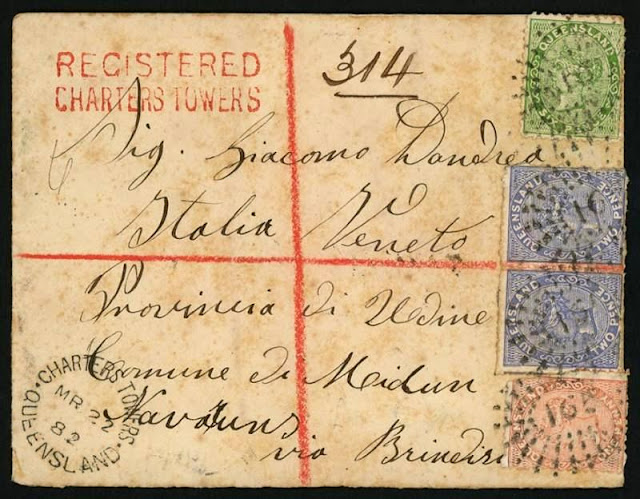 REGISTERED
CHARTERS TOWERS
314
Sig. Giacomo Dandrea
Italia Veneto
Provincia di Udine
Comune di Meidun
Navaruns
via Brindisi
CHARTERS TOWERS.
MR 22
82
QUEENSLAND
QUEENSLAND
QUEENSLAND
TWO PENCE
QUEENSLAND
TWO PENCE